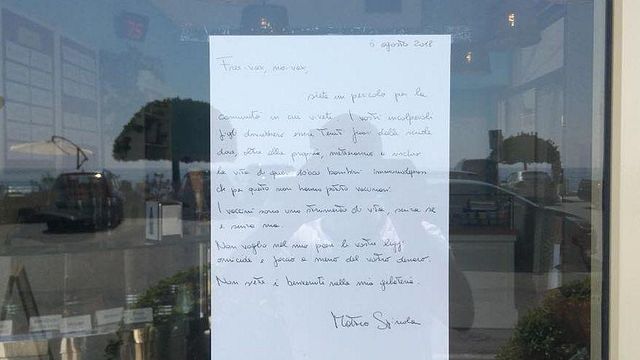 6 agosto 2018
Free-vax, no-vax,
siete un pericolo per la
comunità in cui vivete. I vostri incolpevoli
figli dovrebbero essere tenuti fuori dalle scuole
dove, oltre alla propria, metteranno a rischio
la vita di quei 10.000 bambini immunodepressi
che per questo non hanno potuto vaccinarsi.
I vaccini sono uno strumento di vita, senza se
e senza ma.
Non voglio nel mio paese le vostre leggi
omicide e faccio a meno del vostro denaro.
Non siete i benvenuti nella mia gelateria.
Matteo Spinola